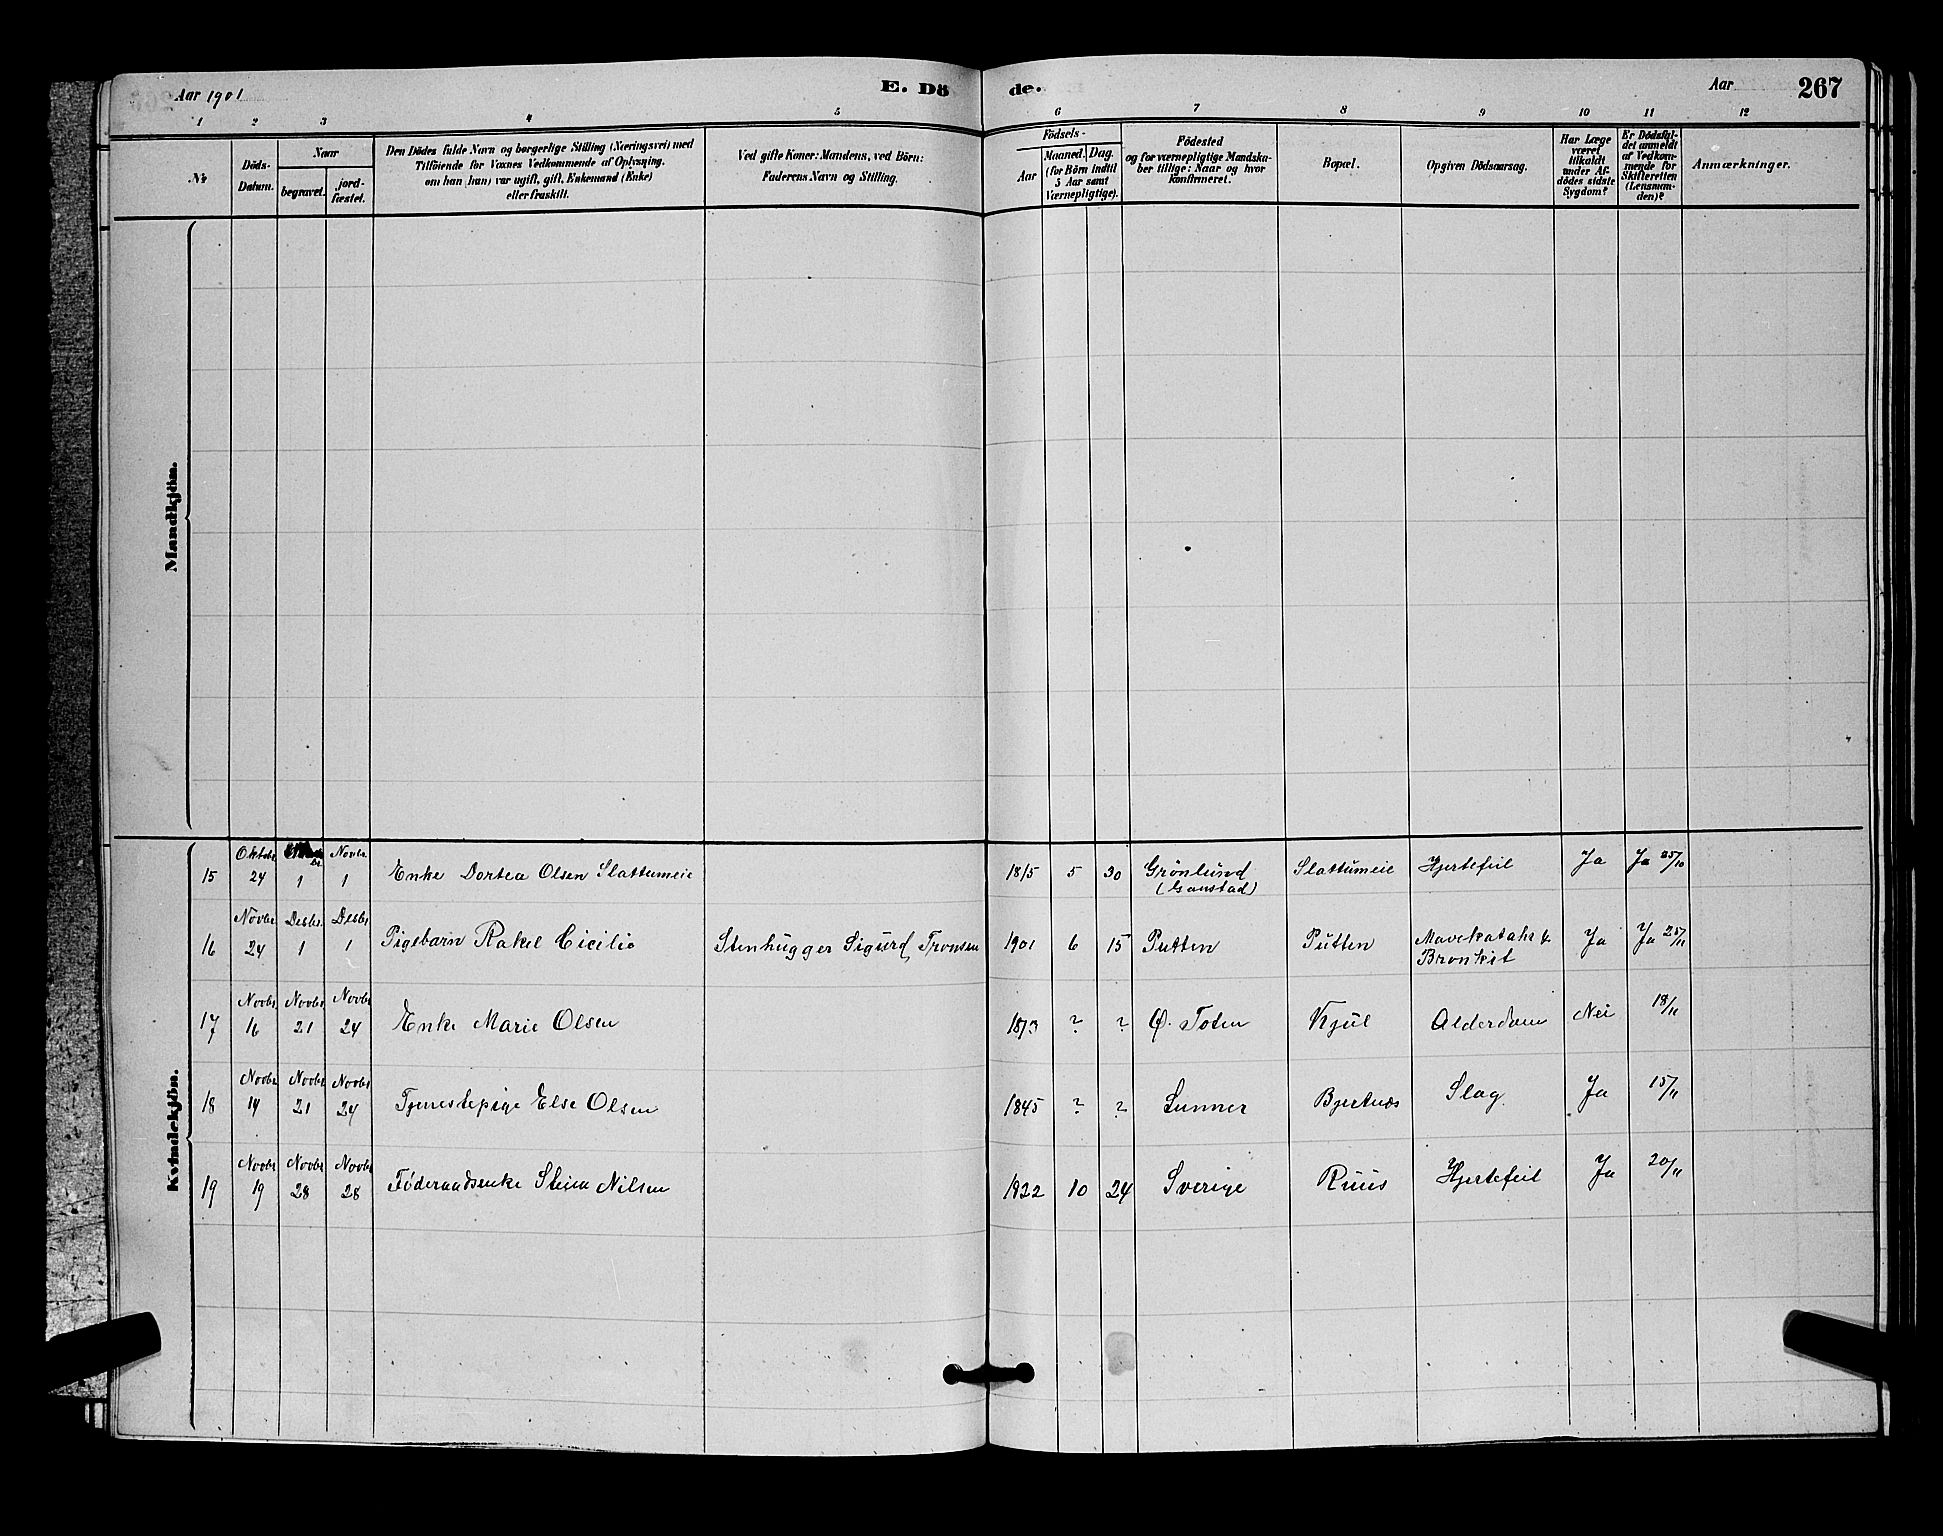 Aar 1901
E. Dö
de.
Aar
267
1 2 3 4 5 6 7 8 9 10 11 12
No.
Döds-
Datum.
Naar
begravet.
jord-
fæstet.
Den Dödes fulde Navn og borgerlige Stilling (Næringsvei) med
Tilföiende for Voxnes Vedkommende af Oplysning,
om han (hun) var ugift, gift, Enkemand (Enke)
eller fraskilt.
Ved gifte Koner: Mandens, ved Börn:
Faderens Navn og Stilling.
Födsels-
Aar
Maaned. Dag.
(for Börn indtil
5 Aar samt
Værnepligtige).
Födested
og for værnepligtige Mandska-
ber tillige: Naar og hvor
konfirmeret.
Bopæl.
Opgiven Dödsaarsag.
Har Læge
været
tilkaldt
under Af-
dödes sidste
Sygdom?
Er Dödsfal-
det anmeldt
af Vedkom-
mende for
Skifteretten
(Lensman-
den)?
Anmærkninger.
Mandkjön.
Kvindekjön.
15 Oktobr 24 1 Novbr 1 Enke Dortea Olsen Slattumeie 1815 5 30 Grönlund Slattumeie Hjertefeil Ja Ja 25/10
16 Novbr 24 Desbr 1 Desbr 1 Pigebarn Rakel Cicilie Stenhugger Sigurd Tronsen 1901 6 15 Putten Putten Mavekatahr & Ja Ja 25/11
Bronkit
17 Novbr 16 Novbr 21 Novbr 24 Enke Marie Olsen ? ? Ø. Toten Kjul Alderdom Nei 18/11
18 Novbr 14 Novbr 21 Novbr 24 Tjenestepige Else Olsen 1845 ? ? Lunner Bjertnæs Slag Ja 15/11
19 Novbr 19 Novbr 28 Novbr 28 Föderaadsenke Nilsen 1822 10 24 Sverige Ruus Hjertefeil Ja 20/11